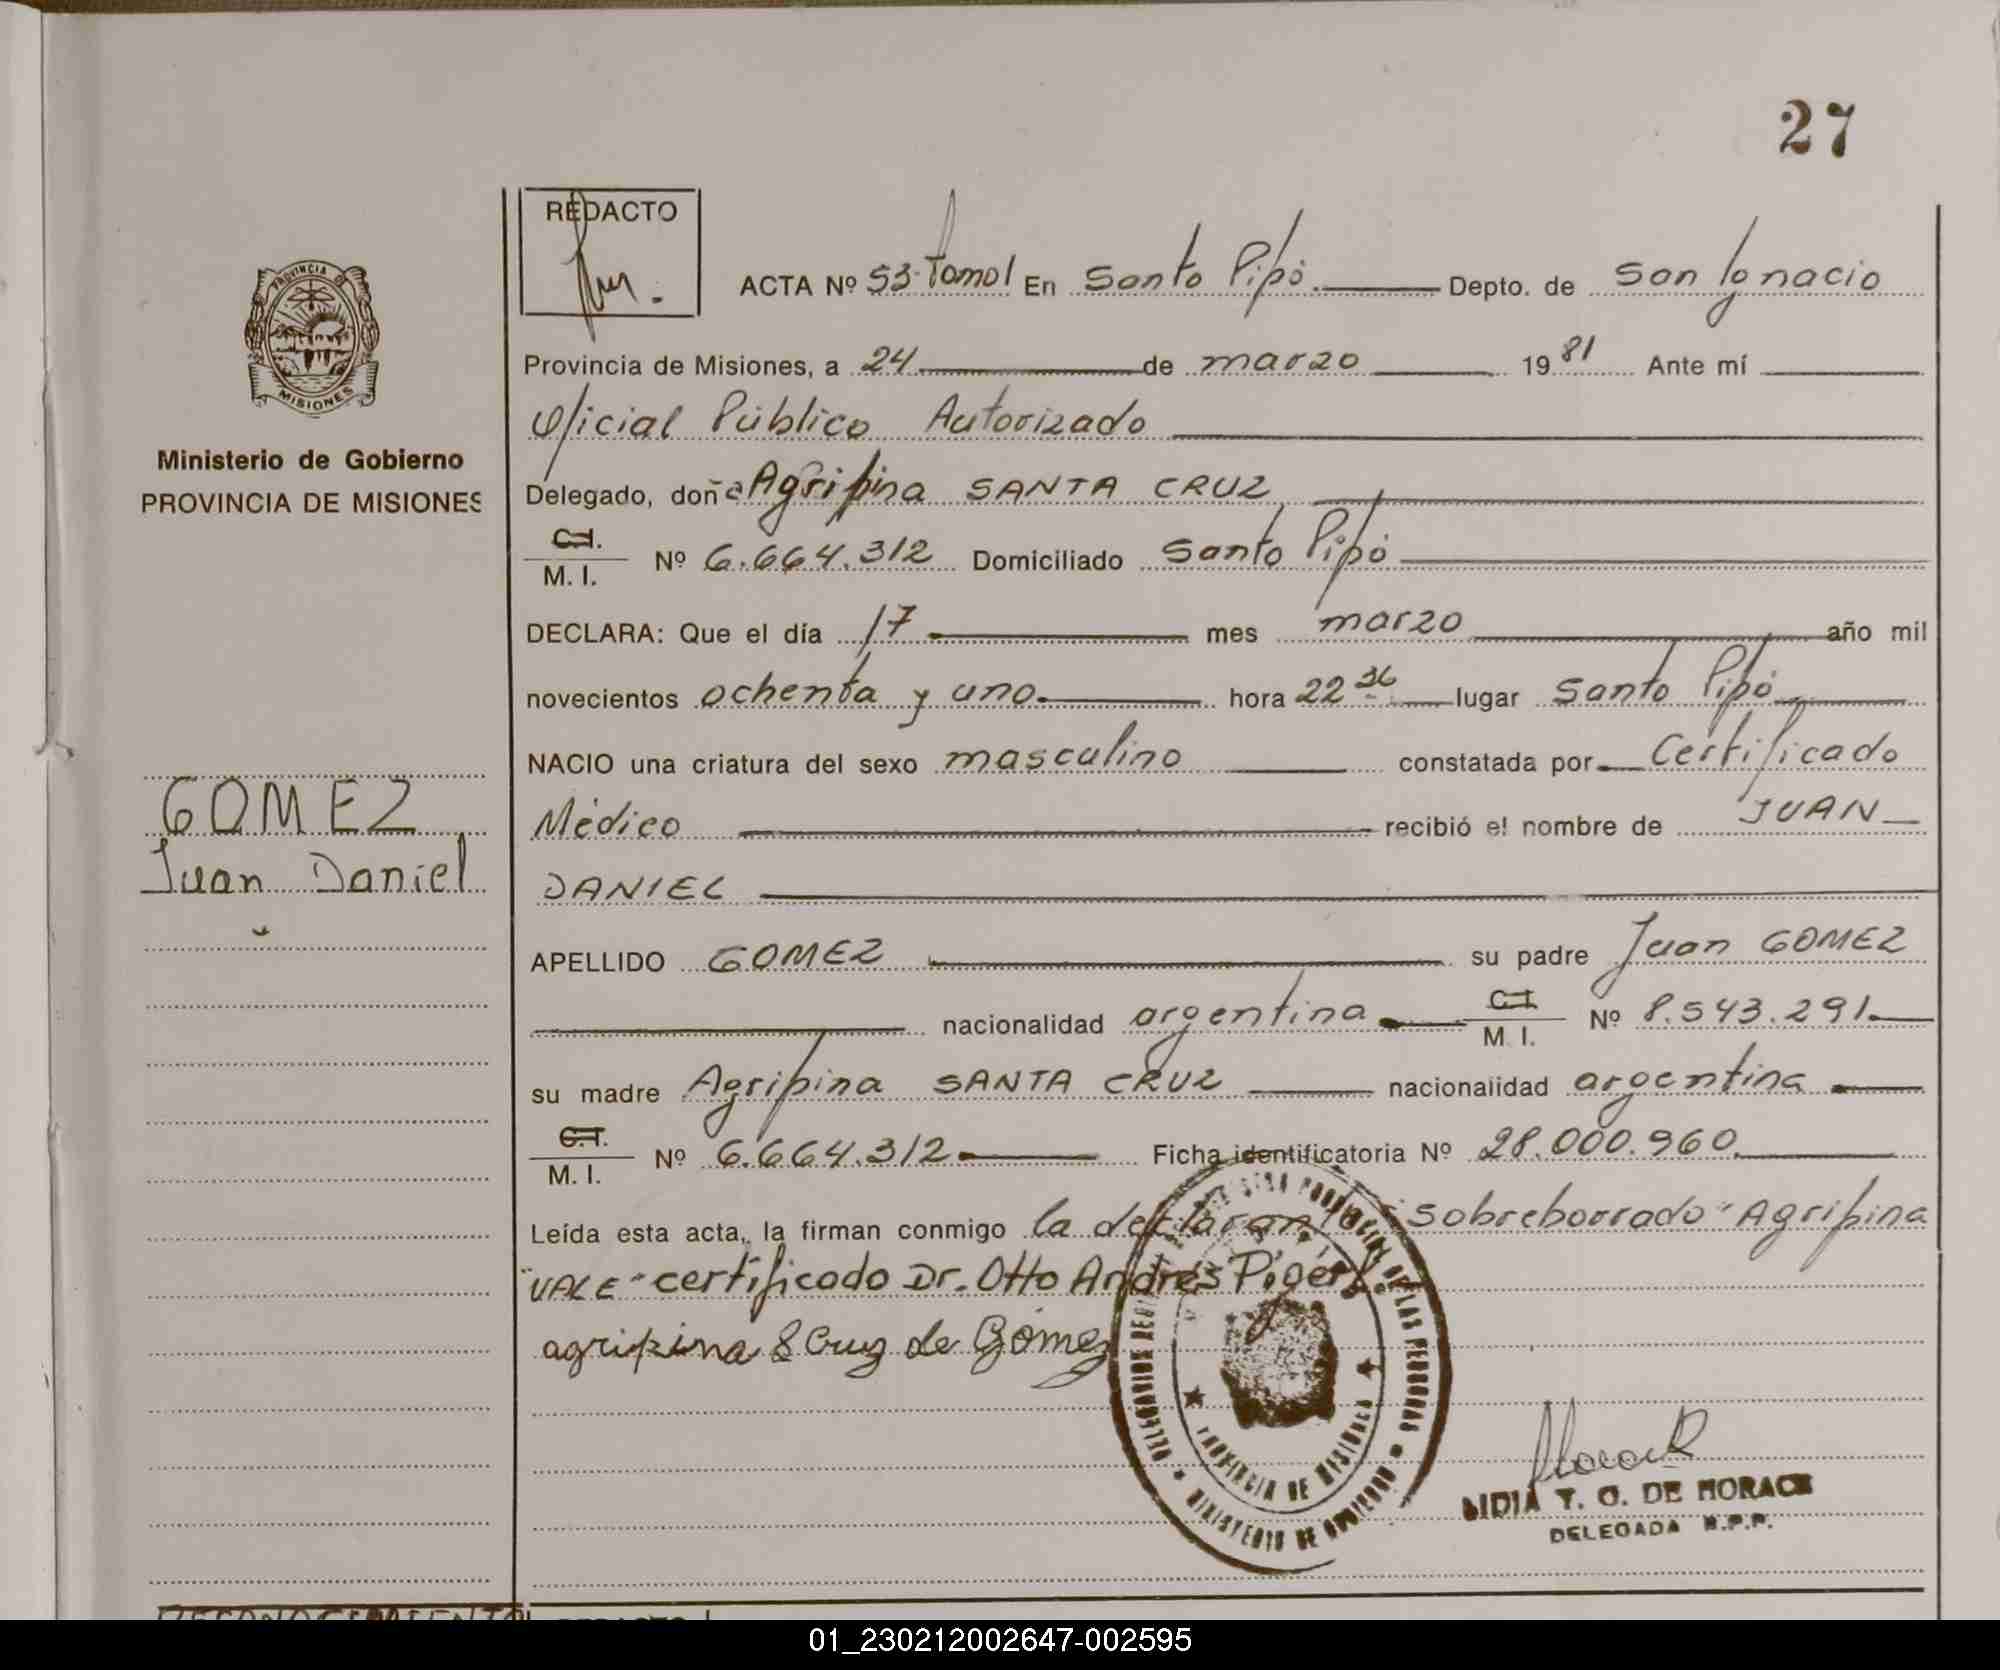 27
REDACTO
ACTA Nº 53 Tomo I En Santo Pipó Depto. de San Ignacio
Provincia de Misiones, a 24 de marzo 1981 Ante mí
Oficial Público Autorizado
Delegado, doña Agripina SANTA CRUZ
C.I.
M. I. Nº 6.664.312 Domiciliado Santo Pipó
DECLARA: Que el día 17 mes marzo año mil
novecientos ochenta y uno hora 22 36 lugar Santo Pipó
NACIO una criatura del sexo masculino constatada por Certificado
Médico recibió el nombre de JUAN
DANIEL
APELLIDO GOMEZ su padre Juan GOMEZ
nacionalidad argentina C.I. M. I. Nº 8.543.291
su madre Agripina SANTA CRUZ nacionalidad argentina
C.I.
M. I. Nº 6.664.312 Ficha identificatoria Nº 28.000.960
Leída esta acta, la firman conmigo la declarante sobreborrado "Agripina
"VALE" certificado Dr. Otto Andrés
agripina S Cruz de Gómez
PROVINCIA DE MISIONES
MINISTERIO DE GOBIERNO
LIDIA T. G. DE HORACK
DELEGADA R.P.P.
PROVINCIA DE
MISIONES
Ministerio de Gobierno
PROVINCIA DE MISIONES
GOMEZ
Juan Daniel
RECONOCIMIENTO
REDACTO
01_230212002647-002595